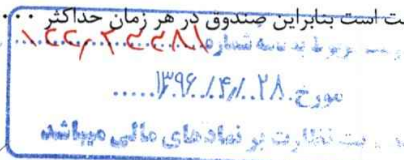 ت است بنابراین صندوق در هر زمان حداکثر ۰۰۰
مربوط به نامه شماره
مورخ ۱۳۹۶/۴/۲۸
ت نظارت بر نهادهای مالی میباشد